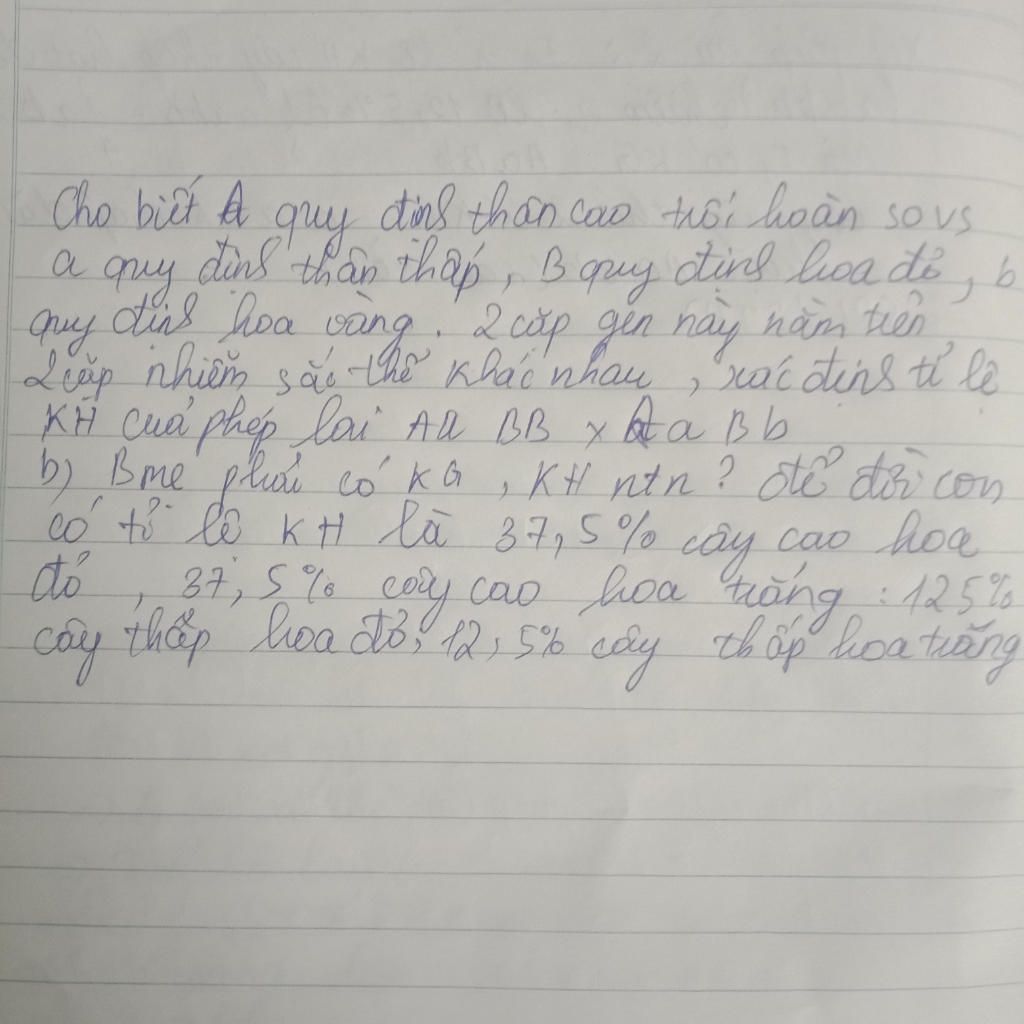 Cho biết A quy định thân cao trội hoàn so vs
a quy định thân thấp, B quy định hoa đỏ, b
quy định hoa vàng. 2 cặp gen này nằm trên
2 cặp nhiễm sắc thể khác nhau, xác định tỉ lệ
KH của phép lai Aa BB x Aa Bb
b) Bmẹ phải có KG, KH ntn? để đời con
có tỉ lệ KH là 37,5% cây cao hoa
đỏ, 37,5% cây cao hoa trắng : 125%
cây thấp hoa đỏ; 12,5% cây thấp hoa trắng